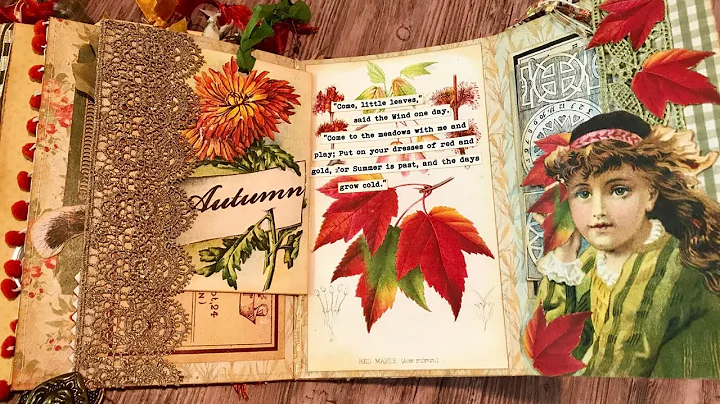 Autumn
"Come, little leaves,"
said the Wind one day.
"Come to the meadows with me and
play; Put on your dresses of red and
gold, for Summer is past, and the days
grow cold."
RED MAPLE (Acer rubrum)
Oct.24